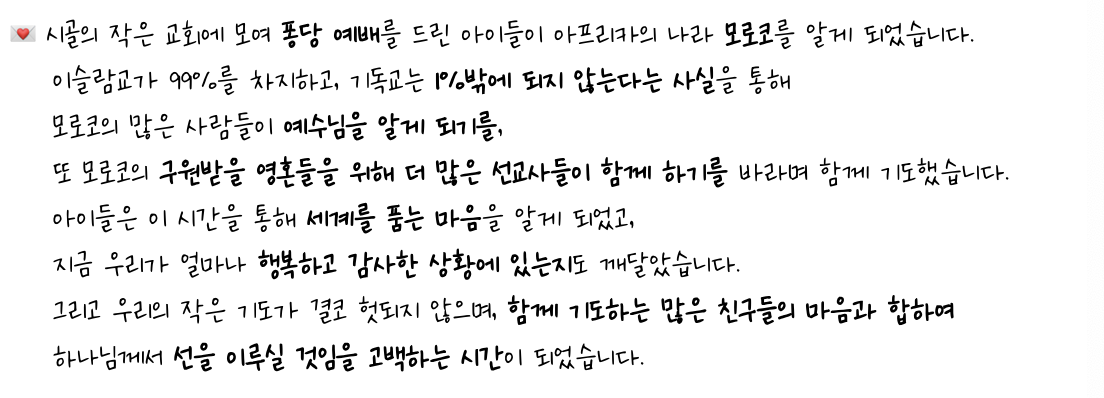 💌 시골의 작은 교회에 모여 퐁당 예배를 드린 아이들이 아프리카의 나라 모로코를 알게 되었습니다.
이슬람교가 99%를 차지하고, 기독교는 1%밖에 되지 않는다는 사실을 통해
모로코의 많은 사람들이 예수님을 알게 되기를,
또 모로코의 구원받을 영혼들을 위해 더 많은 선교사들이 함께 하기를 바라며 함께 기도했습니다.
아이들은 이 시간을 통해 세계를 품는 마음을 알게 되었고,
지금 우리가 얼마나 행복하고 감사한 상황에 있는지도 깨달았습니다.
그리고 우리의 작은 기도가 결코 헛되지 않으며, 함께 기도하는 많은 친구들의 마음과 합하여
하나님께서 선을 이루실 것임을 고백하는 시간이 되었습니다.